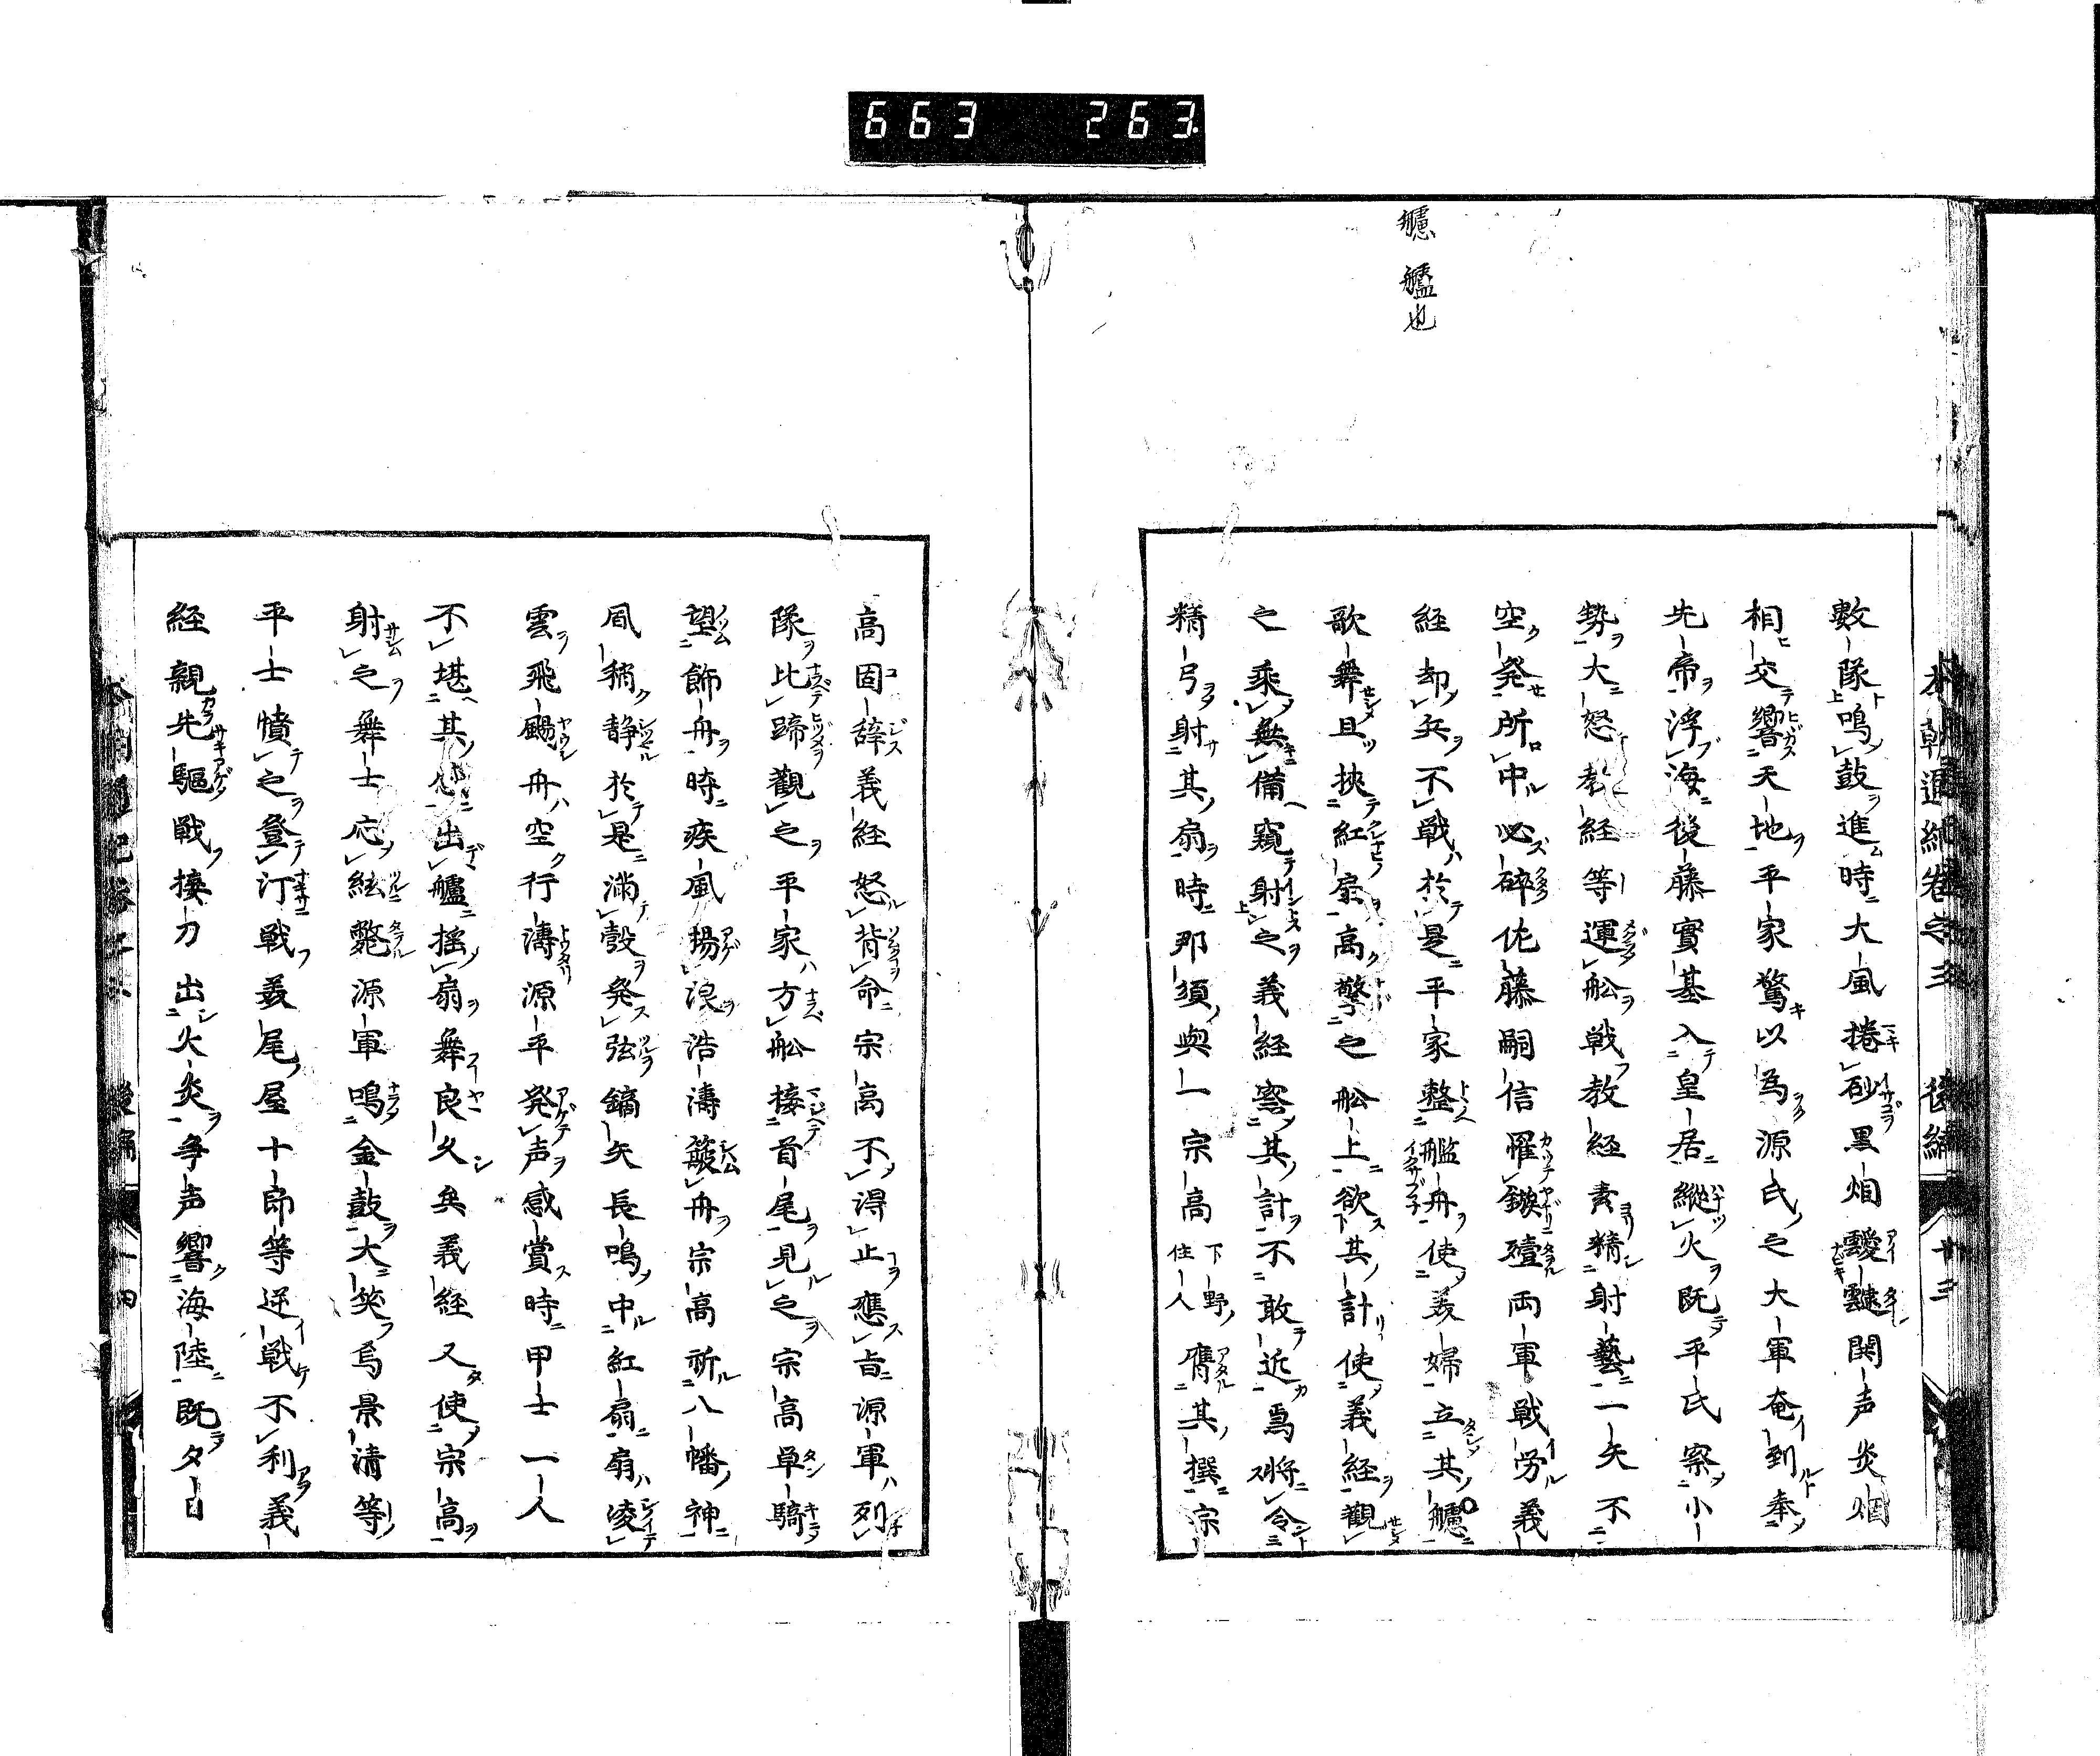 663 263
艫 艫也
數隊鳴鼓進時大風捲砂黒烟靉靆関声炎烟
相交響天地平家驚以為源氏之大軍奄到奉
先帝浮海後藤實基入皇居縱火既平氏察小
勢大怒教経等運舩戦教経素精射藝一矢不
空発所中必碎佐藤嗣信罹鏃殪両軍戦労義
経却兵不戦於是平家整艦舟使美婦立其艫
歌舞且挾紅扇高擎之舩上欲其計使義経觀
之乘無備窺射之義経察其計不敢近焉将令
精弓射其扇時那須與一宗高下野住人膺其撰宗
高固辞義経怒背命宗高不得止應旨源軍列
隊比蹄觀之平家方舩接首尾見之宗高単騎
望飾舟時疾風揚浪浩濤簸舟宗高祈八幡神
風稍静於是満彀発弦鏑矢長鳴中紅扇扇凌
雲飛颺舟空行濤源平発声感賞時甲士一人
不堪其心出艫揺扇舞良久矣義経又使宗高
射之舞士応絃斃源軍鳴金鼓大笑焉景清等
平士憤之登汀戦美尾屋十郎等逆戦不利義
経親先驅戦接刀出火炎争声響海陸既夕日